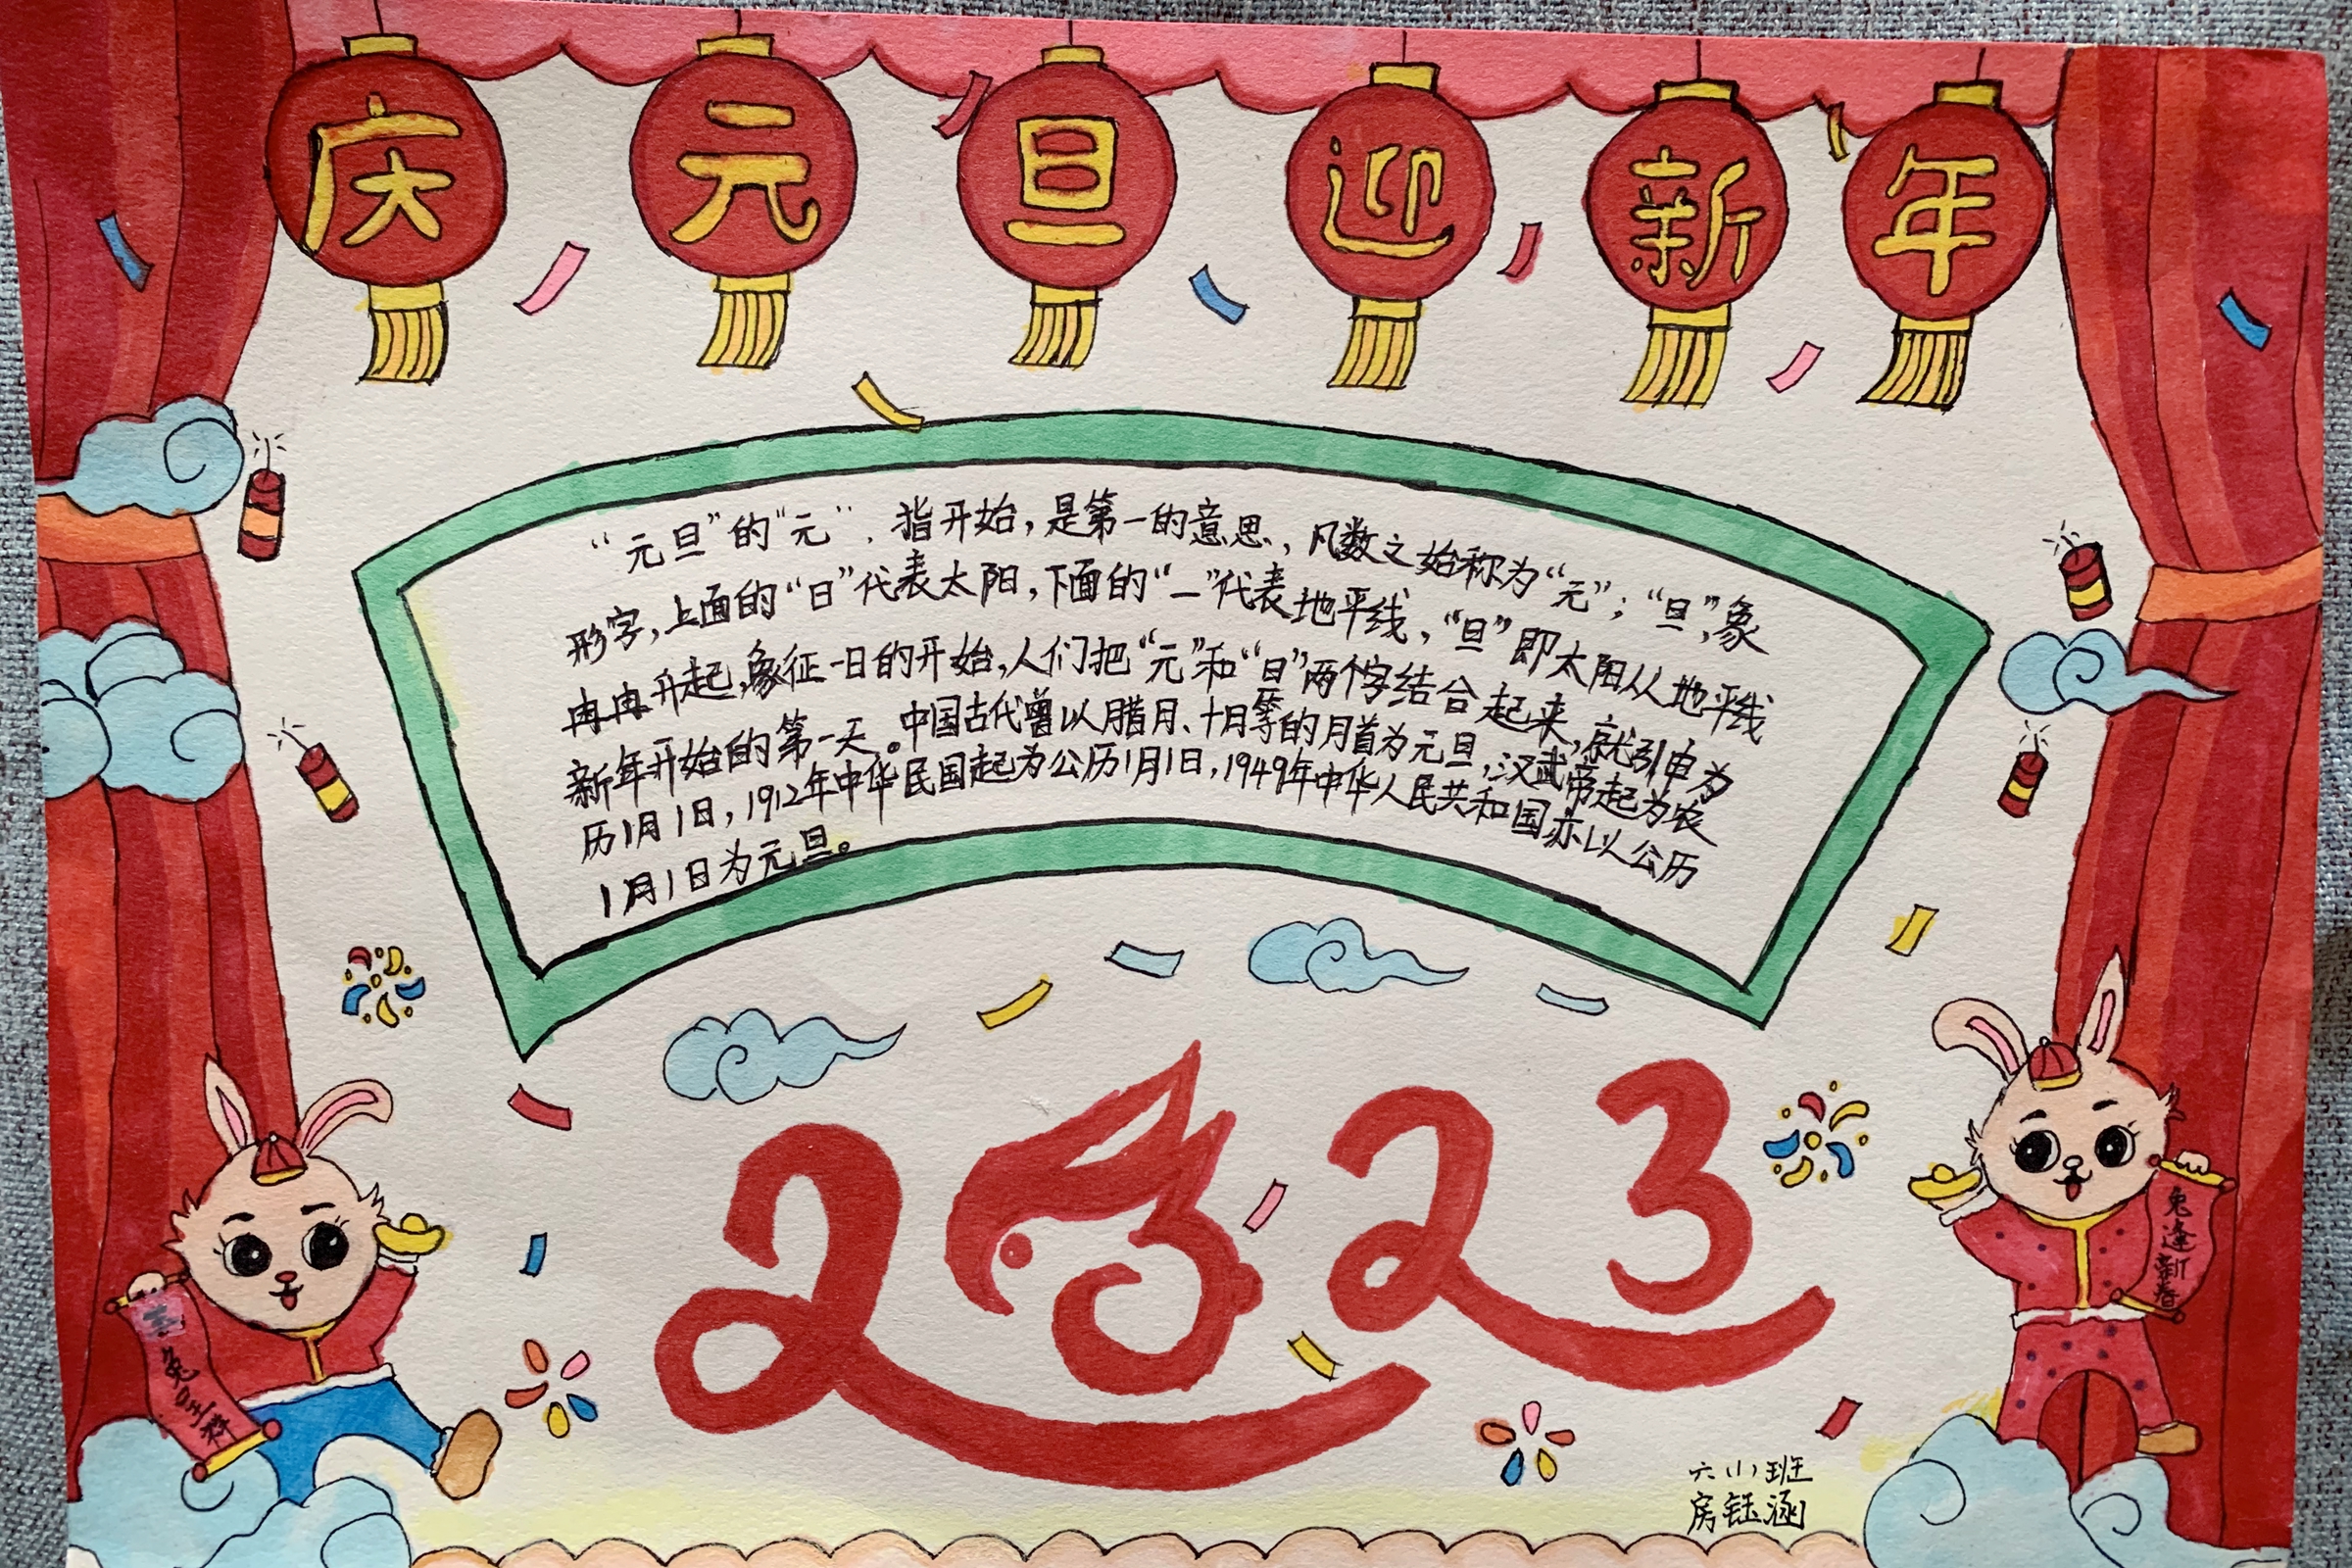 庆元旦迎新年
“元旦”的“元”,指开始,是第一的意思,凡数之始称为“元”;“旦”,象
形字,上面的“日”代表太阳,下面的“一”代表地平线,“旦”即太阳从地平线
冉冉升起,象征一日的开始,人们把“元”和“日”两个字结合起来,就引申为
新年开始的第一天。中国古代曾以腊月、十月等的月首为元旦,汉武帝起为农
历1月1日,1912年中华民国起为公历1月1日,1949年中华人民共和国亦以公历
1月1日为元旦。
2023
兔呈祥
兔逢新春
六(1)班
房钰涵